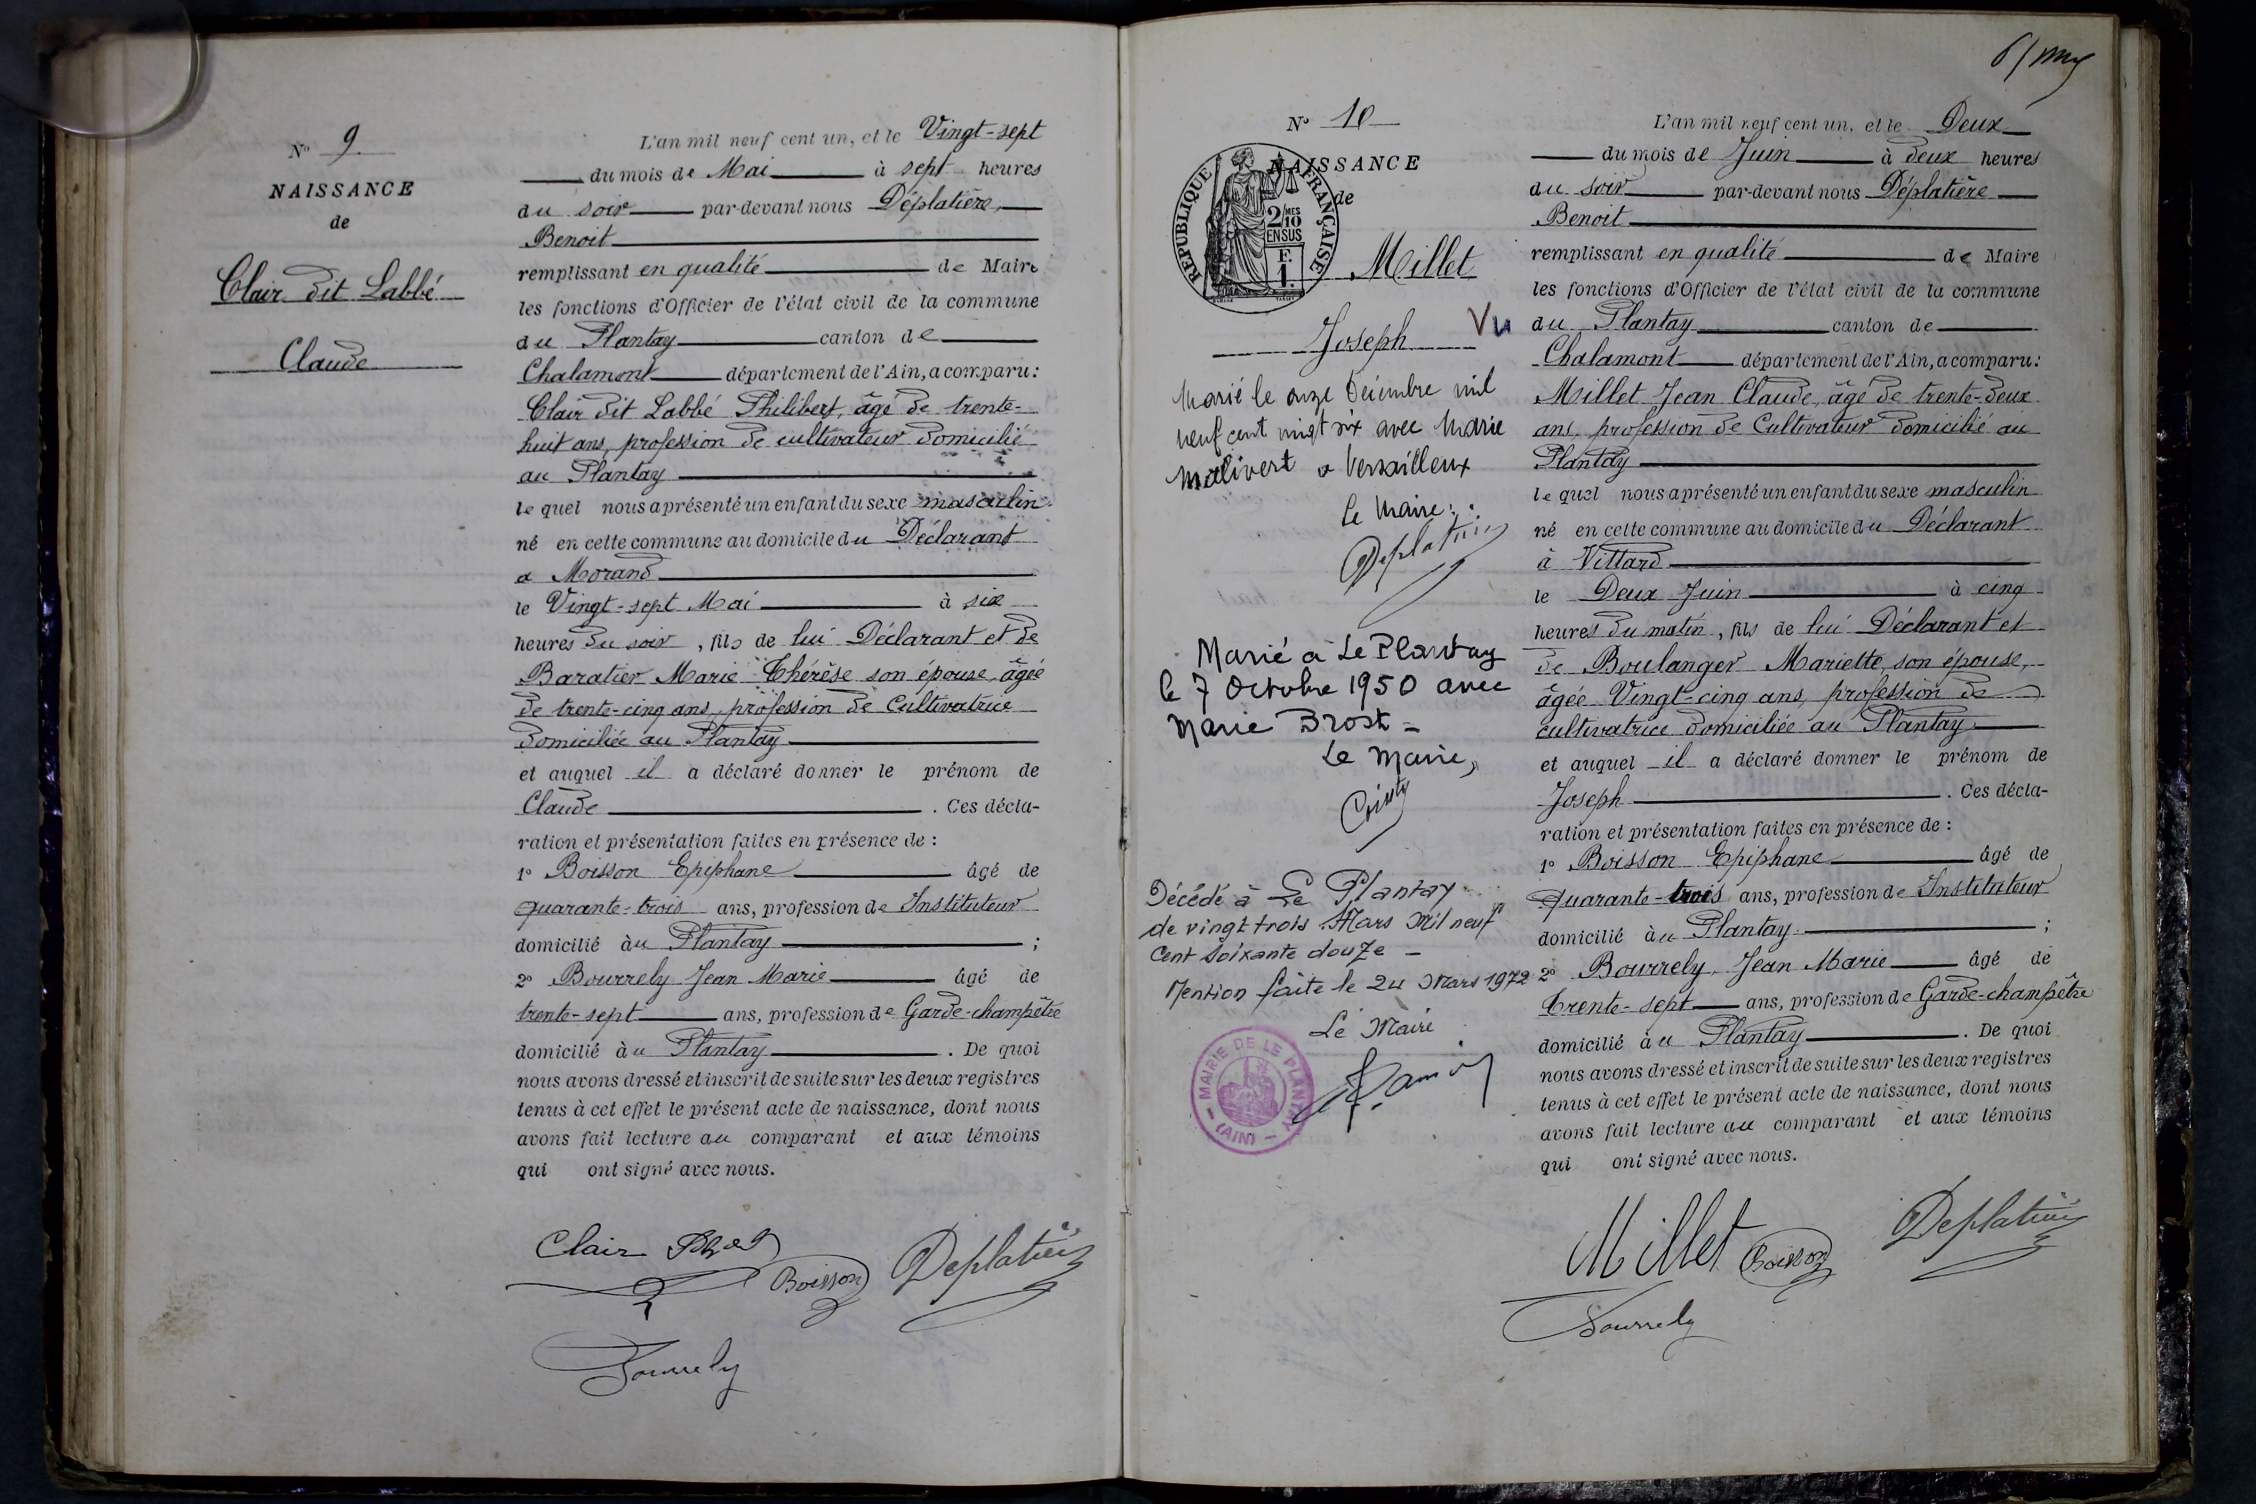 N° 9
NAISSANCE
de
Clair dit Labbé
Claude
L'an mil neuf cent un, et le Vingt-sept
du mois de Mai à sept heures
du soir par-devant nous Déplatière,
Benoit
remplissant en qualité de Maire
les fonctions d'Officier de l'état civil de la commune
du Plantay canton de
Chalamont département de l'Ain, a comparu:
Clair dit Labbé Philibert, âgé de trente-
huit ans, profession de cultivateur domicilié
au Plantay
lequel nous a présenté un enfant du sexe masculin
né en cette commune au domicile du Déclarant
a Morand
le Vingt-sept Mai à six
heures du soir, fils de lui Déclarant et de
Baratier Marie Thérèse son épouse, âgée
de trente-cinq ans, profession de Cultivatrice
domiciliée au Plantay
et auquel il a déclaré donner le prénom de
Claude. Ces décla-
ration et présentation faites en présence de :
1° Boisson Epiphane âgé de
quarante-trois ans, profession de Instituteur
domicilié au Plantay ;
2° Bourrely Jean Marie âgé de
trente-sept ans, profession de Garde-champêtre
domicilié au Plantay. De quoi
nous avons dressé et inscrit de suite sur les deux registres
tenus à cet effet le présent acte de naissance, dont nous
avons fait lecture au comparant et aux témoins
qui ont signé avec nous.
Clair
Boisson
Deplatière
Bourrely
N° 10
NAISSANCE
de
RÉPUBLIQUE FRANÇAISE
2/10 MES
EN SUS
F.
1.
Millet
Joseph
Vu
Marié le onze Décembre mil
neuf cent vingt six avec Marie
Malivert a Versailleux
Le Maire :
Deplatière
Marié à Le Plantay
le 7 Octobre 1950 avec
Marie Brost -
Le Maire,
Décédé à Le Plantay
le vingt trois Mars mil neuf
cent soixante douze -
Mention faite le 24 Mars 1972
Le Maire
MAIRIE DE LE PLANTAY
- (AIN) -
L'an mil neuf cent un, et le Deux
du mois de Juin à deux heures
du soir par-devant nous Déplatière
Benoit
remplissant en qualité de Maire
les fonctions d'Officier de l'état civil de la commune
du Plantay canton de
Chalamont département de l'Ain, a comparu:
Millet Jean Claude, âgé de trente-deux
ans, profession de Cultivateur domicilié au
Plantay
lequel nous a présenté un enfant du sexe masculin
né en cette commune au domicile du Déclarant
à Villard
le Deux Juin à cinq
heures du matin, fils de lui Déclarant et
de Boulanger Mariette, son épouse,
âgée Vingt-cinq ans, profession de
cultivatrice domiciliée au Plantay
et auquel il a déclaré donner le prénom de
Joseph. Ces décla-
ration et présentation faites en présence de :
1° Boisson Epiphane âgé de
Quarante-trois ans, profession de Instituteur
domicilié au Plantay ;
2° Bourrely, Jean Marie âgé de
trente-sept ans, profession de Garde-champêtre
domicilié au Plantay. De quoi
nous avons dressé et inscrit de suite sur les deux registres
tenus à cet effet le présent acte de naissance, dont nous
avons fait lecture au comparant et aux témoins
qui ont signé avec nous.
Millet
Boisson
Deplatière
Bourrely